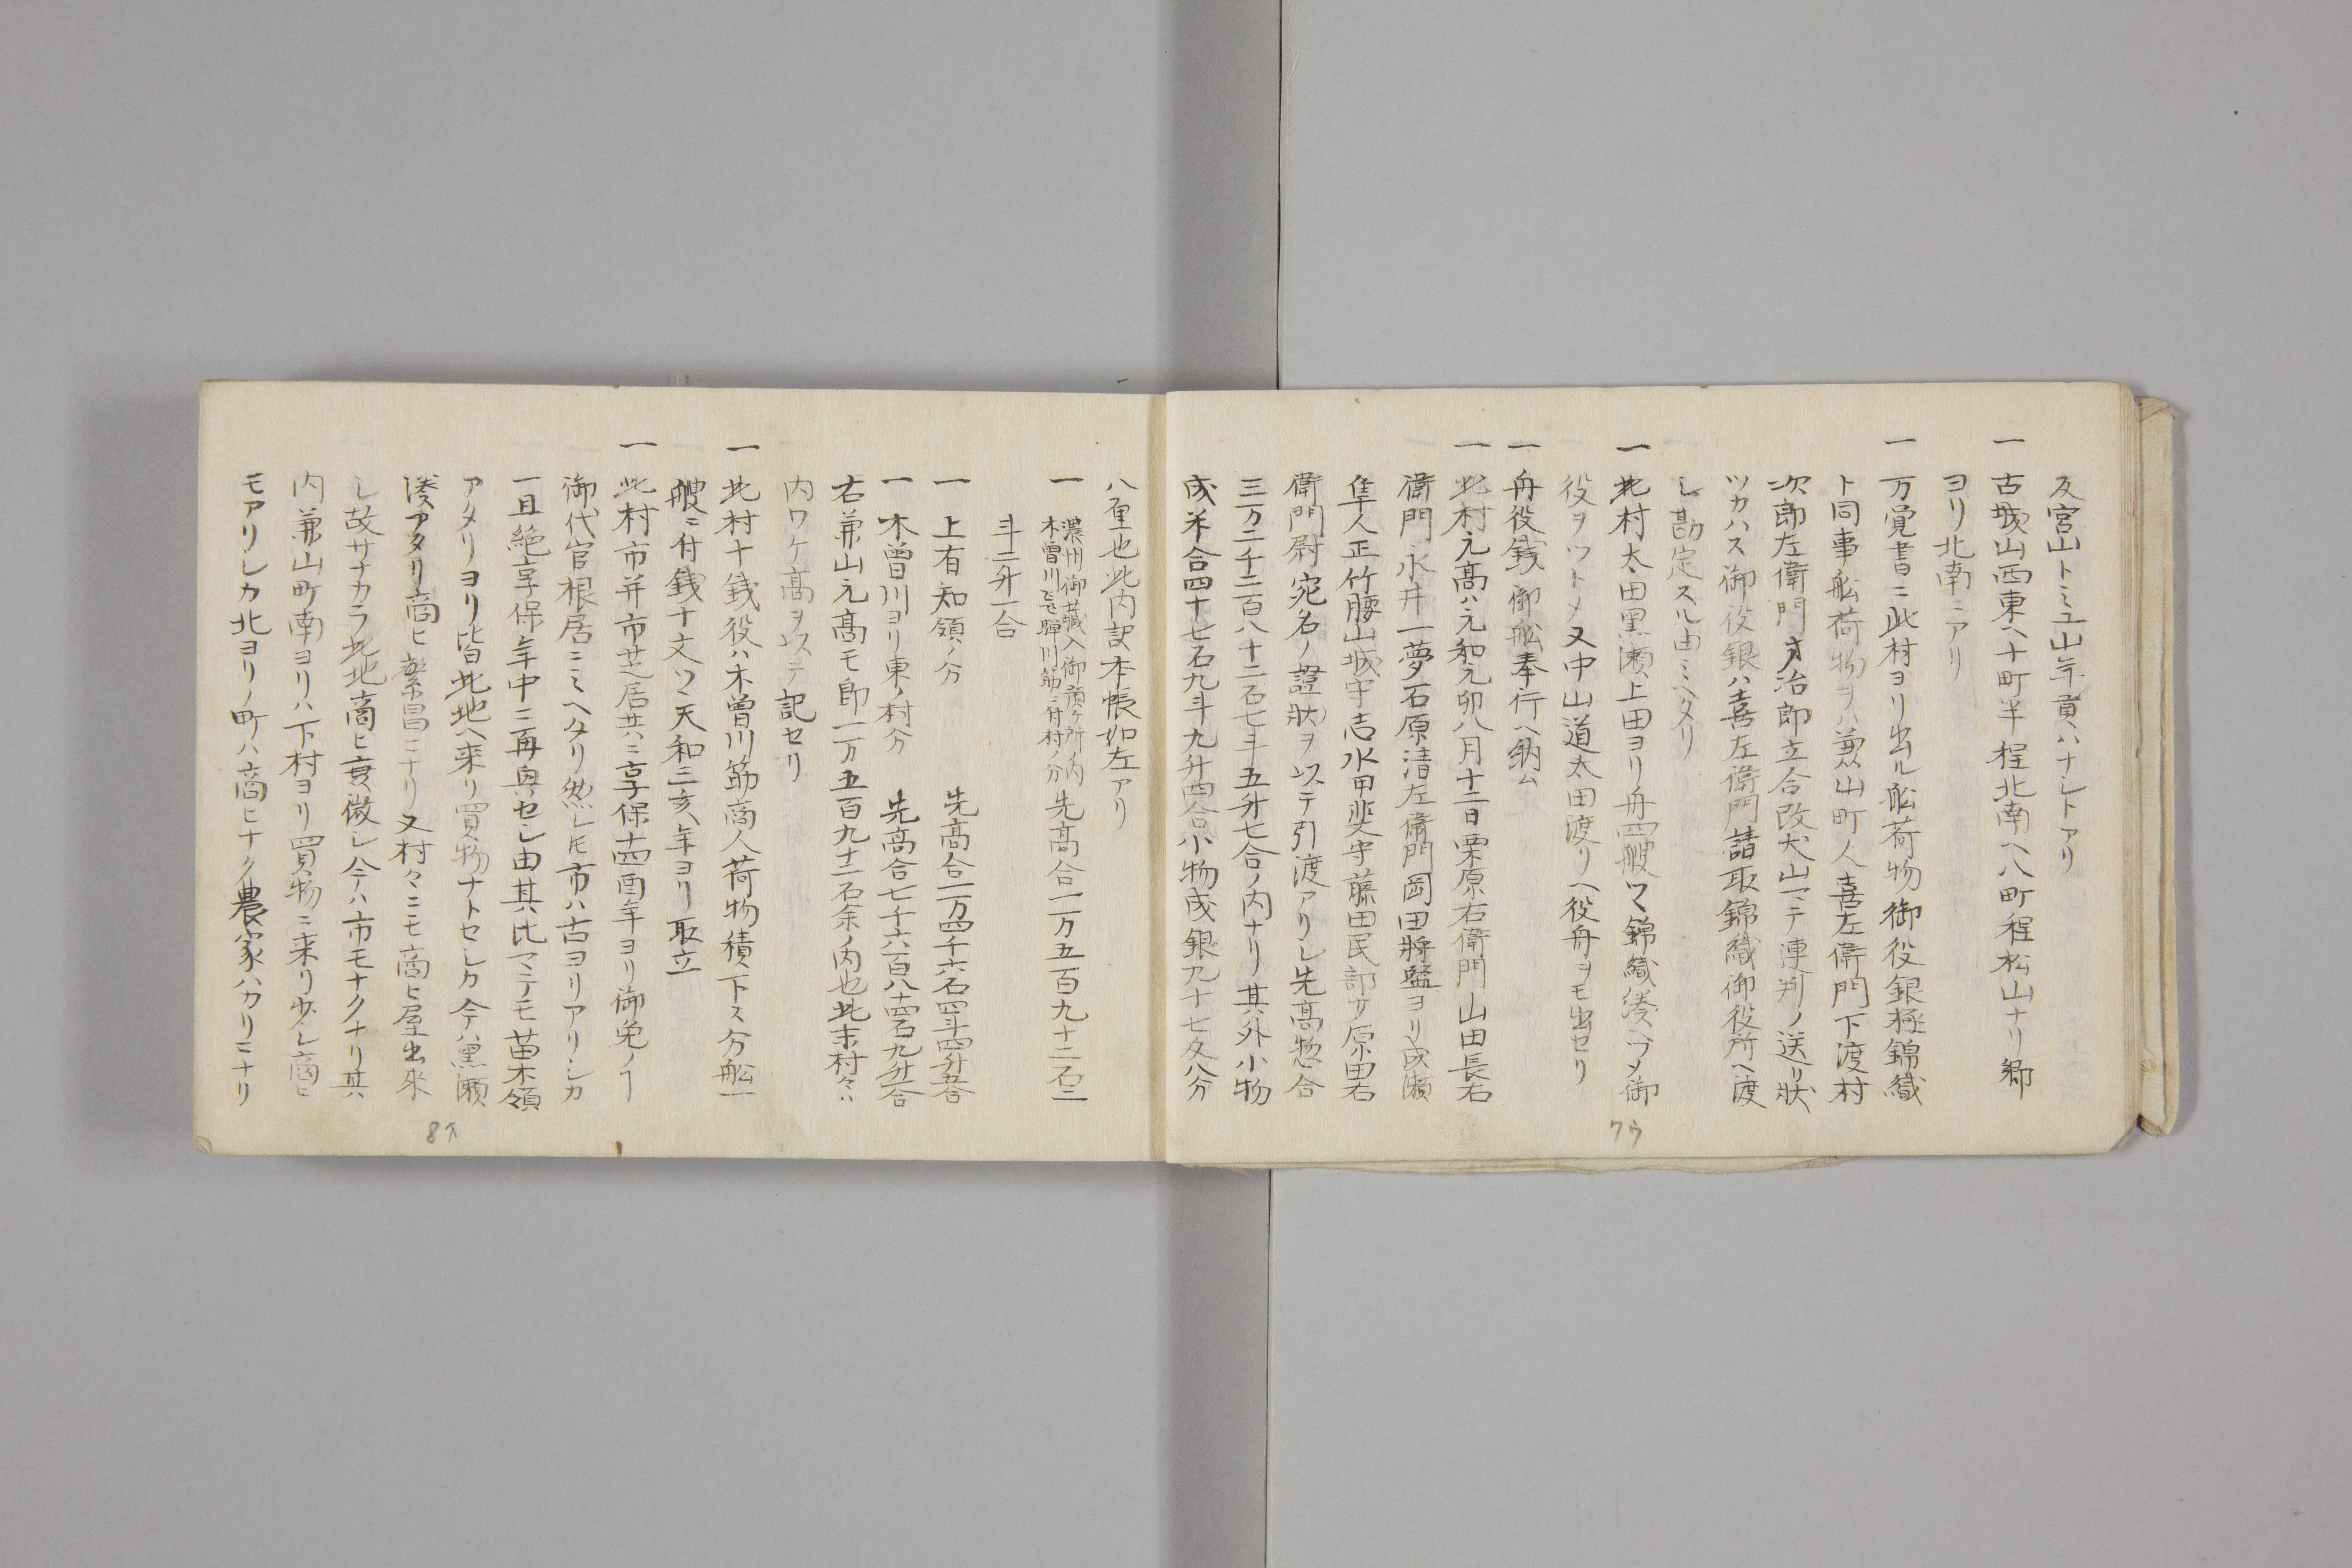 反宮山トミユ山年貢ハナシトアリ
一 古城山西東ヘ十町半程北南ヘ八町程松山ナリ郷
ヨリ北南ニアリ
一 万覚書ニ此村ヨリ出ル舩荷物御役銀極錦織
ト同事舩荷物ヲハ兼山町人喜左衛門下渡村
次郎左衛門才治郎立合改犬山マテ連判ノ送リ状
ツカハス御役銀ハ喜左衛門請取錦織御役所ヘ渡
シ勘定スル由ミヘタリ
一 此村太田黒瀬上田ヨリ舟四艘ツヽ錦織湊ヘツメ御
役ヲツトメ又中山道太田渡リヘ役舟ヲモ出セリ
一 舟役銭御舩奉行ヘ納ム
一 此村元高ハ元和元卯八月十二日栗原右衛門山田長右
衛門永井一夢石原清左衛門岡田將監ヨリ成瀬
隼人正竹腰山城守志水甲斐守藤田民部サ原田右
衛門尉宛名ノ證状ヲ以テ引渡アリシ先高惣合
三万二千二百八十二石七斗五升七合ノ内ナリ其外小物
成米合四十七石九斗九升四合小物成銀九十七匁八分
八厘也此内訳本帳如左アリ
一 濃州御蔵入御領ケ所ノ内
木曽川飛騨川筋ニ付村ノ分 先高合一万五百九十二石二
斗二升一合
一 上有知領ノ分 先高合一万四千六石四斗四升五合
一 木曽川ヨリ東ノ村分 先高合七千六百八十四石九升合
右兼山元高モ即一万五百九十二石余ノ内也此末村々ハ
内ワケ高ヲ以テ記セリ
一 此村十銭役ハ木曽川筋商人荷物積下ス分舩一
艘ニ付銭十文ツヽ天和三亥年ヨリ取立
一 此村市并市芝居共ニ享保十四酉年ヨリ御免ノヿ
御代官根居ニミヘタリ然レトモ市ハ古ヨリアリシカ
一旦絶享保年中ニ再興セシ由其比マテモ苗木領
アタリヨリ皆此地ヘ来リ買物ナトセシカ今ハ黒瀬
湊アタリ商ヒ繁昌ニナリ又村々ニモ商ヒ屋出来
シ故サナカラ此地商ヒ衰微シ今ハ市モナクナリ其
内兼山町南ヨリハ下村ヨリ買物ニ来リ少シ商ヒ
モアリシカ北ヨリノ町ハ商ヒナク農家ハカリニナリ
7ウ
8オ